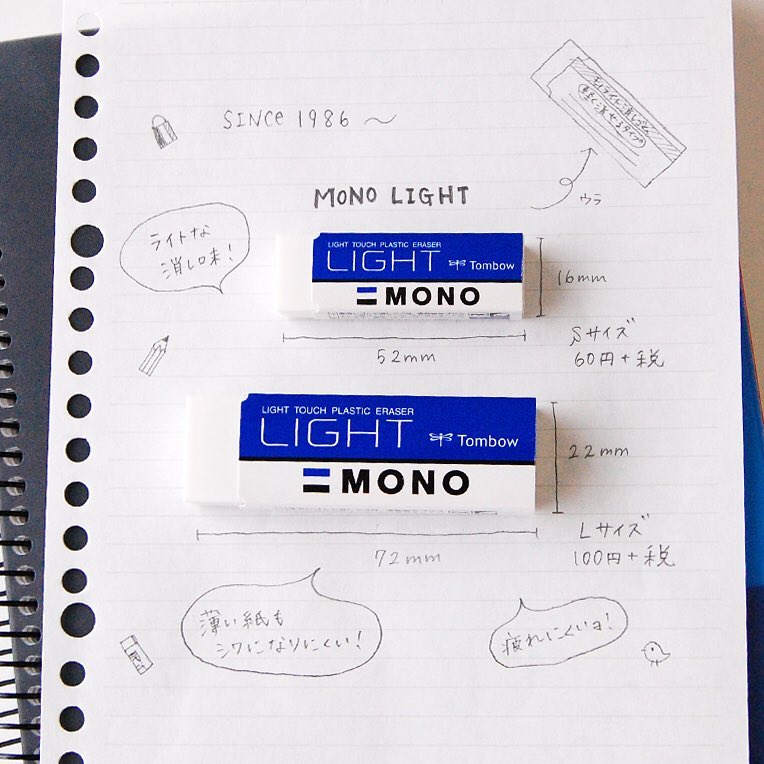 SINCE 1986 〜
軽く消せるタイプ
ウラ
MONO LIGHT
ライトな
消し味!
LIGHT TOUCH PLASTIC ERASER
LIGHT
Tombow
MONO
16mm
52mm
Sサイズ
60円+税
LIGHT TOUCH PLASTIC ERASER
LIGHT
Tombow
MONO
22mm
72mm
Lサイズ
100円+税
薄い紙も
シワになりにくい!
疲れにくいヨ!